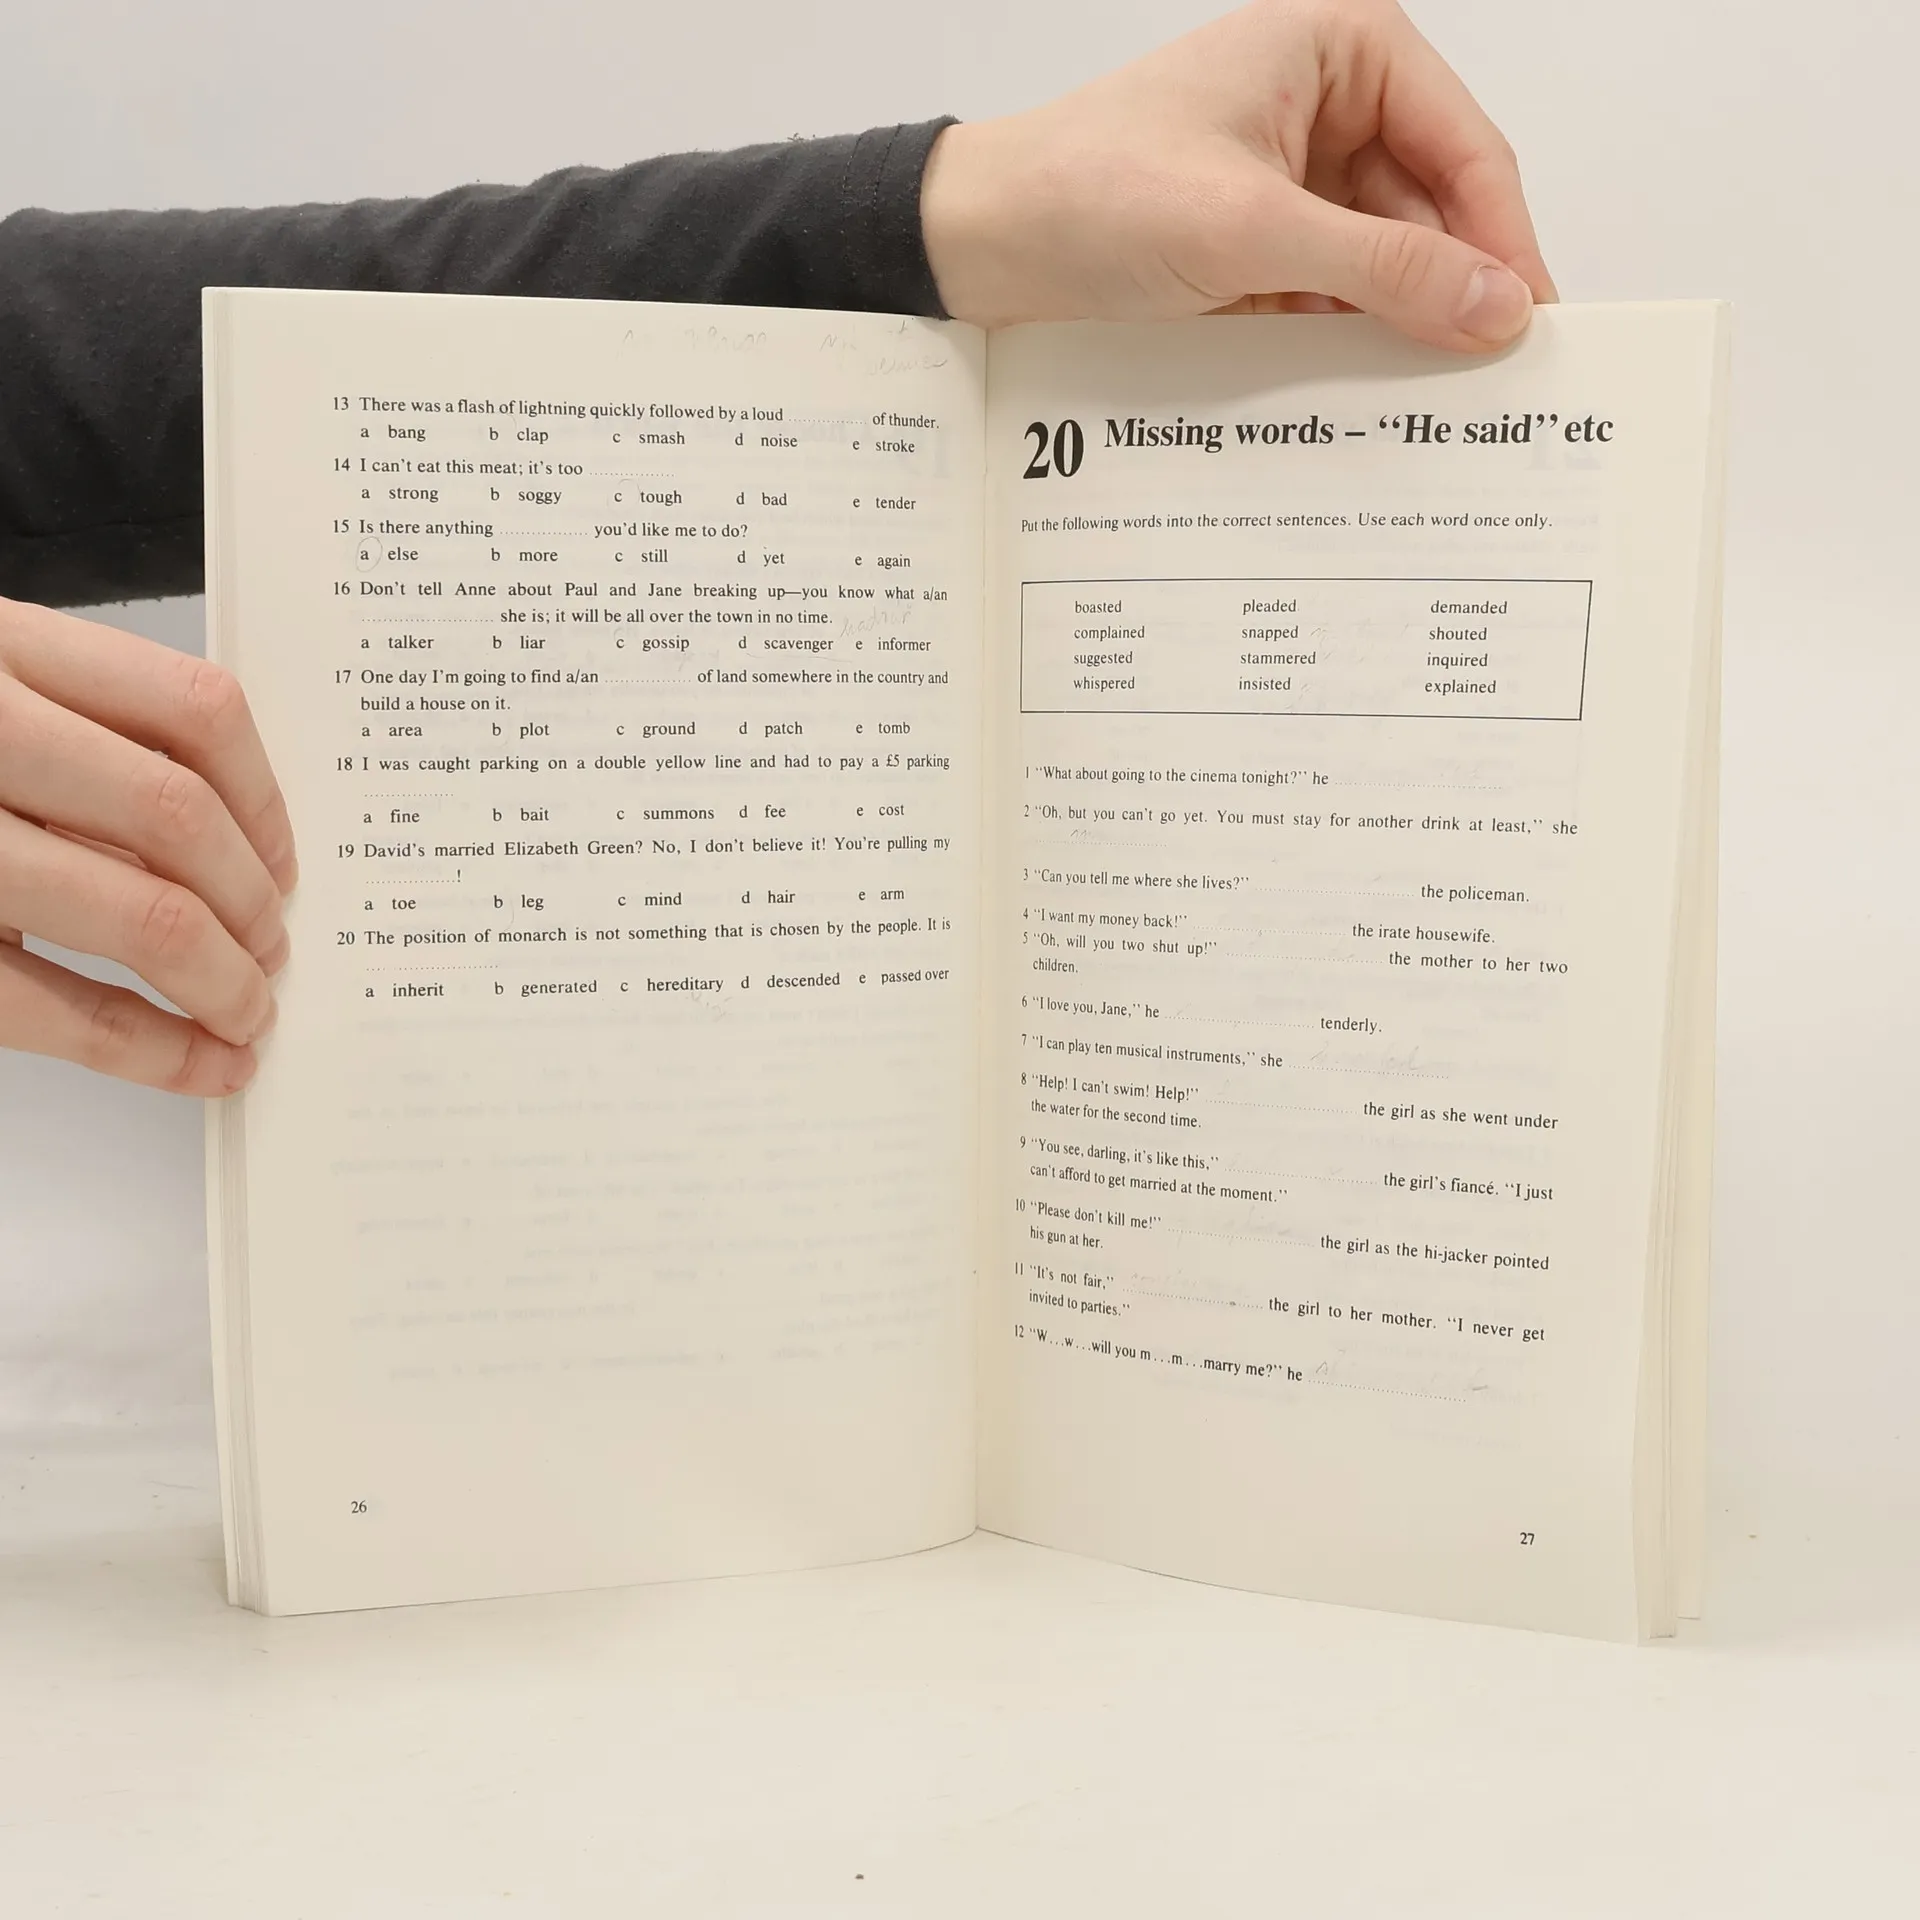 13 There was a flash of lightning quickly followed by a loud .............. of thunder.
a bang b clap c smash d noise e stroke
14 I can't eat this meat; it's too ..............
a strong b soggy c tough d bad e tender
15 Is there anything .............. you'd like me to do?
a else b more c still d yet e again
16 Don't tell Anne about Paul and Jane breaking up—you know what a/an
.............. she is; it will be all over the town in no time.
a talker b liar c gossip d scavenger e informer
17 One day I'm going to find a/an .............. of land somewhere in the country and
build a house on it.
a area b plot c ground d patch e tomb
18 I was caught parking on a double yellow line and had to pay a £5 parking
..............
a fine b bait c summons d fee e cost
19 David's married Elizabeth Green? No, I don't believe it! You're pulling my
..............!
a toe b leg c mind d hair e arm
20 The position of monarch is not something that is chosen by the people. It is
..............
a inherit b generated c hereditary d descended e passed over
26
20 Missing words – “He said” etc
Put the following words into the correct sentences. Use each word once only.
boasted pleaded demanded
complained snapped shouted
suggested stammered inquired
whispered insisted explained
1 “What about going to the cinema tonight?” he ..............
2 “Oh, but you can't go yet. You must stay for another drink at least,” she
..............
3 “Can you tell me where she lives?” .............. the policeman.
4 “I want my money back!” .............. the irate housewife.
5 “Oh, will you two shut up!” .............. the mother to her two
children.
6 “I love you, Jane,” he .............. tenderly.
7 “I can play ten musical instruments,” she ..............
8 “Help! I can't swim! Help!” .............. the girl as she went under
the water for the second time.
9 “You see, darling, it's like this,” .............. the girl's fiancé. “I just
can't afford to get married at the moment.”
10 “Please don't kill me!” .............. the girl as the hi-jacker pointed
his gun at her.
11 “It's not fair,” .............. the girl to her mother. “I never get
invited to parties.”
12 “W...w...will you m...m...marry me?” he ..............
27